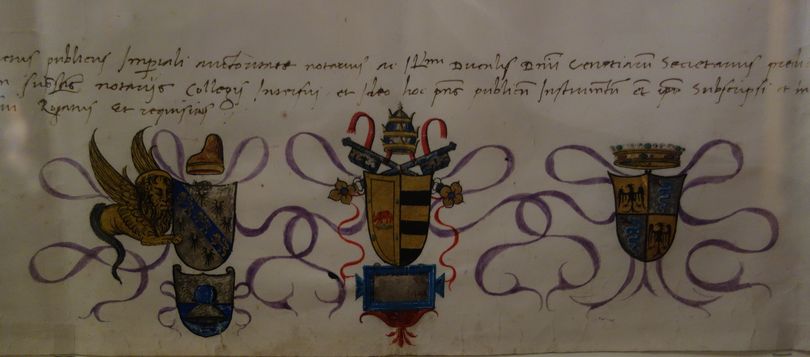 publicus Imperiali auctoritate notarius ac Ill^mi Ducalis D^nii Venetiarū Secretarius
notarijs Collegis Interfui et Ideo hoc pñs publicū Instrumētū Subscripsi et
Rogatus Et requisitus